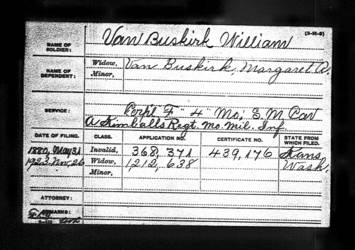 (3-111-2)
NAME OF SOLDIER: Van Buskirk William
NAME OF DEPENDENT: Widow, Van Buskirk, Margaret A.
Minor,
SERVICE: F 4" Mo; S. M. Cav
A Kimballs Regt. Mo. Mil. Inf
DATE OF FILING. CLASS. APPLICATION NO. CERTIFICATE NO. STATE FROM WHICH FILED.
1880, May 31 Invalid, 368,371 439,176 Kans
1923. Jan, 26 Widow, 1212,638 Wash.
Minor,
ATTORNEY:
REMARKS: